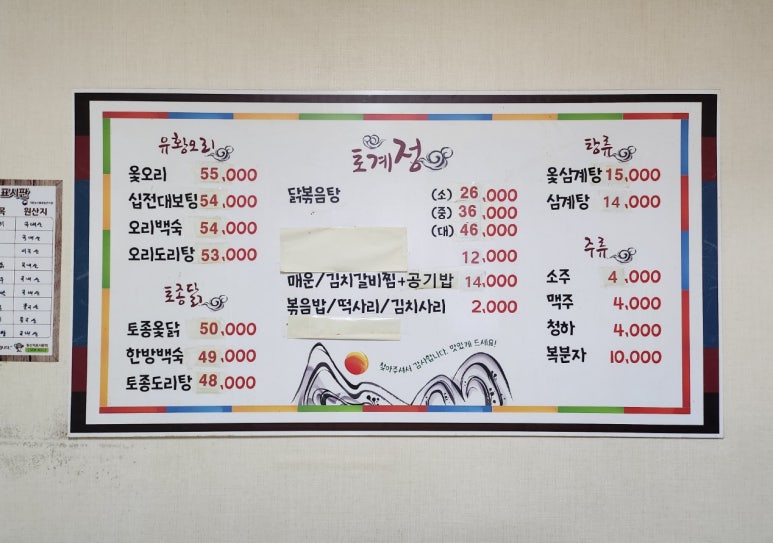 유황오리
옻오리 55,000
십전대보탕 54,000
오리백숙 54,000
오리도리탕 53,000
토종닭
토종옻닭 50,000
한방백숙 49,000
토종도리탕 48,000
토계정
닭볶음탕 (소) 26,000
(중) 36,000
(대) 46,000
12,000
매운/김치갈비찜+공기밥 14,000
볶음밥/떡사리/김치사리 2,000
찾아주셔서 감사합니다. 맛있게 드세요!
탕류
옻삼계탕 15,000
삼계탕 14,000
주류
소주 4,000
맥주 4,000
청하 4,000
복분자 10,000
표시판
원산지